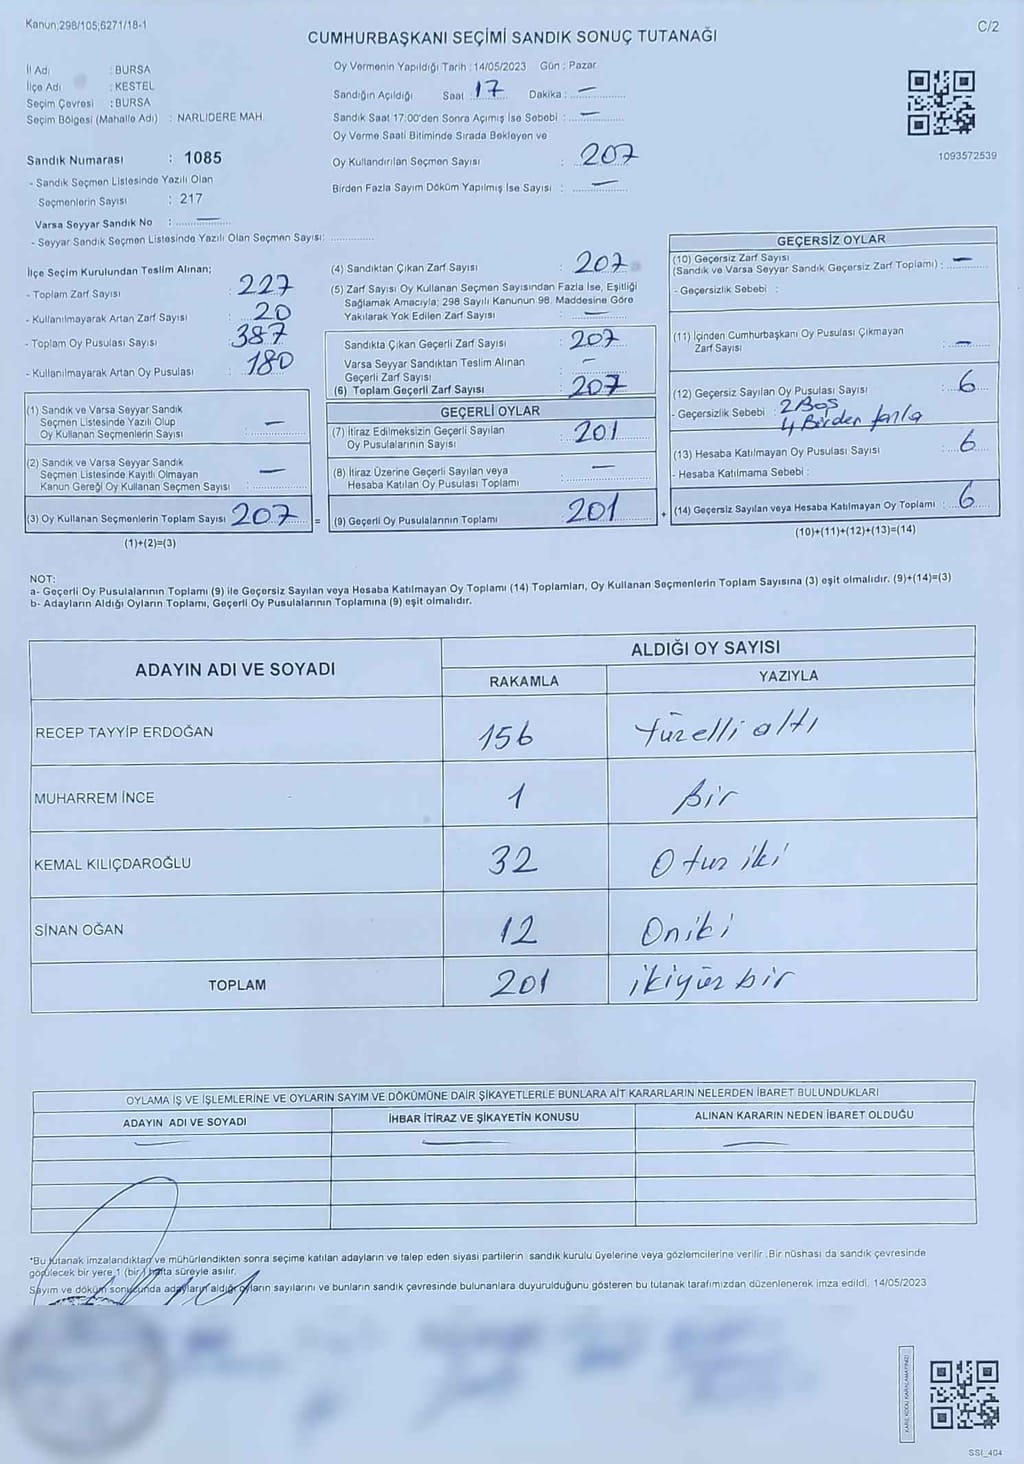 Kanun;298/105;6271/18-1
C/2
CUMHURBAŞKANI SEÇİMİ SANDIK SONUÇ TUTANAĞI
İl Adı : BURSA
İlçe Adı : KESTEL
Seçim Çevresi : BURSA
Seçim Bölgesi (Mahalle Adı) : NARLIDERE MAH.
Sandık Numarası : 1085
- Sandık Seçmen Listesinde Yazılı Olan
Seçmenlerin Sayısı : 217
Varsa Seyyar Sandık No : —
- Seyyar Sandık Seçmen Listesinde Yazılı Olan Seçmen Sayısı:
Oy Vermenin Yapıldığı Tarih : 14/05/2023 Gün : Pazar
Sandığın Açıldığı Saat : 17 Dakika : —
Sandık Saat 17:00'den Sonra Açımış İse Sebebi : —
Oy Verme Saati Bitiminde Sırada Bekleyen ve
Oy Kullandırılan Seçmen Sayısı : 207
Birden Fazla Sayım Döküm Yapılmış İse Sayısı : —
1093572539
İlçe Seçim Kurulundan Teslim Alınan;
- Toplam Zarf Sayısı : 227
- Kullanılmayarak Artan Zarf Sayısı : 20
- Toplam Oy Pusulası Sayısı : 387
- Kullanılmayarak Artan Oy Pusulası : 180
(1) Sandık ve Varsa Seyyar Sandık
Seçmen Listesinde Yazılı Olup
Oy Kullanan Seçmenlerin Sayısı : —
(2) Sandık ve Varsa Seyyar Sandık
Seçmen Listesinde Kayıtlı Olmayan
Kanun Gereği Oy Kullanan Seçmen Sayısı : —
(3) Oy Kullanan Seçmenlerin Toplam Sayısı 207
(1)+(2)=(3)
=
(4) Sandıktan Çıkan Zarf Sayısı : 207
(5) Zarf Sayısı Oy Kullanan Seçmen Sayısından Fazla İse, Eşitliği
Sağlamak Amacıyla; 298 Sayılı Kanunun 98. Maddesine Göre
Yakılarak Yok Edilen Zarf Sayısı : —
Sandıkta Çıkan Geçerli Zarf Sayısı : 207
Varsa Seyyar Sandıktan Teslim Alınan
Geçerli Zarf Sayısı : —
(6) Toplam Geçerli Zarf Sayısı : 207
GEÇERLİ OYLAR
(7) İtiraz Edilmeksizin Geçerli Sayılan
Oy Pusulalarının Sayısı : 201
(8) İtiraz Üzerine Geçerli Sayılan veya
Hesaba Katılan Oy Pusulası Toplamı : —
(9) Geçerli Oy Pusulalarının Toplamı : 201
+
GEÇERSİZ OYLAR
(10) Geçersiz Zarf Sayısı
(Sandık ve Varsa Seyyar Sandık Geçersiz Zarf Toplamı) : —
- Geçersizlik Sebebi :
(11) İçinden Cumhurbaşkanı Oy Pusulası Çıkmayan
Zarf Sayısı : —
(12) Geçersiz Sayılan Oy Pusulası Sayısı : 6
- Geçersizlik Sebebi : 2 Boş
4 Birden fazla
(13) Hesaba Katılmayan Oy Pusulası Sayısı : 6
- Hesaba Katılmama Sebebi :
(14) Geçersiz Sayılan veya Hesaba Katılmayan Oy Toplamı : 6
(10)+(11)+(12)+(13)=(14)
NOT:
a- Geçerli Oy Pusulalarının Toplamı (9) ile Geçersiz Sayılan veya Hesaba Katılmayan Oy Toplamı (14) Toplamları, Oy Kullanan Seçmenlerin Toplam Sayısına (3) eşit olmalıdır. (9)+(14)=(3)
b- Adayların Aldığı Oyların Toplamı, Geçerli Oy Pusulalarının Toplamına (9) eşit olmalıdır.
ADAYIN ADI VE SOYADI ALDIĞI OY SAYISI
RAKAMLA YAZIYLA
RECEP TAYYİP ERDOĞAN 156 Yüzelli altı
MUHARREM İNCE 1 Bir
KEMAL KILIÇDAROĞLU 32 Otuz iki
SİNAN OĞAN 12 Oniki
TOPLAM 201 ikiyüz bir
OYLAMA İŞ VE İŞLEMLERİNE VE OYLARIN SAYIM VE DÖKÜMÜNE DAİR ŞİKAYETLERLE BUNLARA AİT KARARLARIN NELERDEN İBARET BULUNDUKLARI
ADAYIN ADI VE SOYADI İHBAR İTİRAZ VE ŞİKAYETİN KONUSU ALINAN KARARIN NEDEN İBARET OLDUĞU
— — —
*Bu tutanak imzalandıktan ve mühürlendikten sonra seçime katılan adayların ve talep eden siyasi partilerin sandık kurulu üyelerine veya gözlemcilerine verilir. Bir nüshası da sandık çevresinde
görülecek bir yere 1 (bir) hafta süreyle asılır.
Sayım ve döküm sonucunda adayların aldığı oyların sayılarını ve bunların sandık çevresinde bulunanlara duyurulduğunu gösteren bu tutanak tarafımızdan düzenlenerek imza edildi. 14/05/2023
KARE KODU KARALAMAYINIZ!
SSİ_4G4